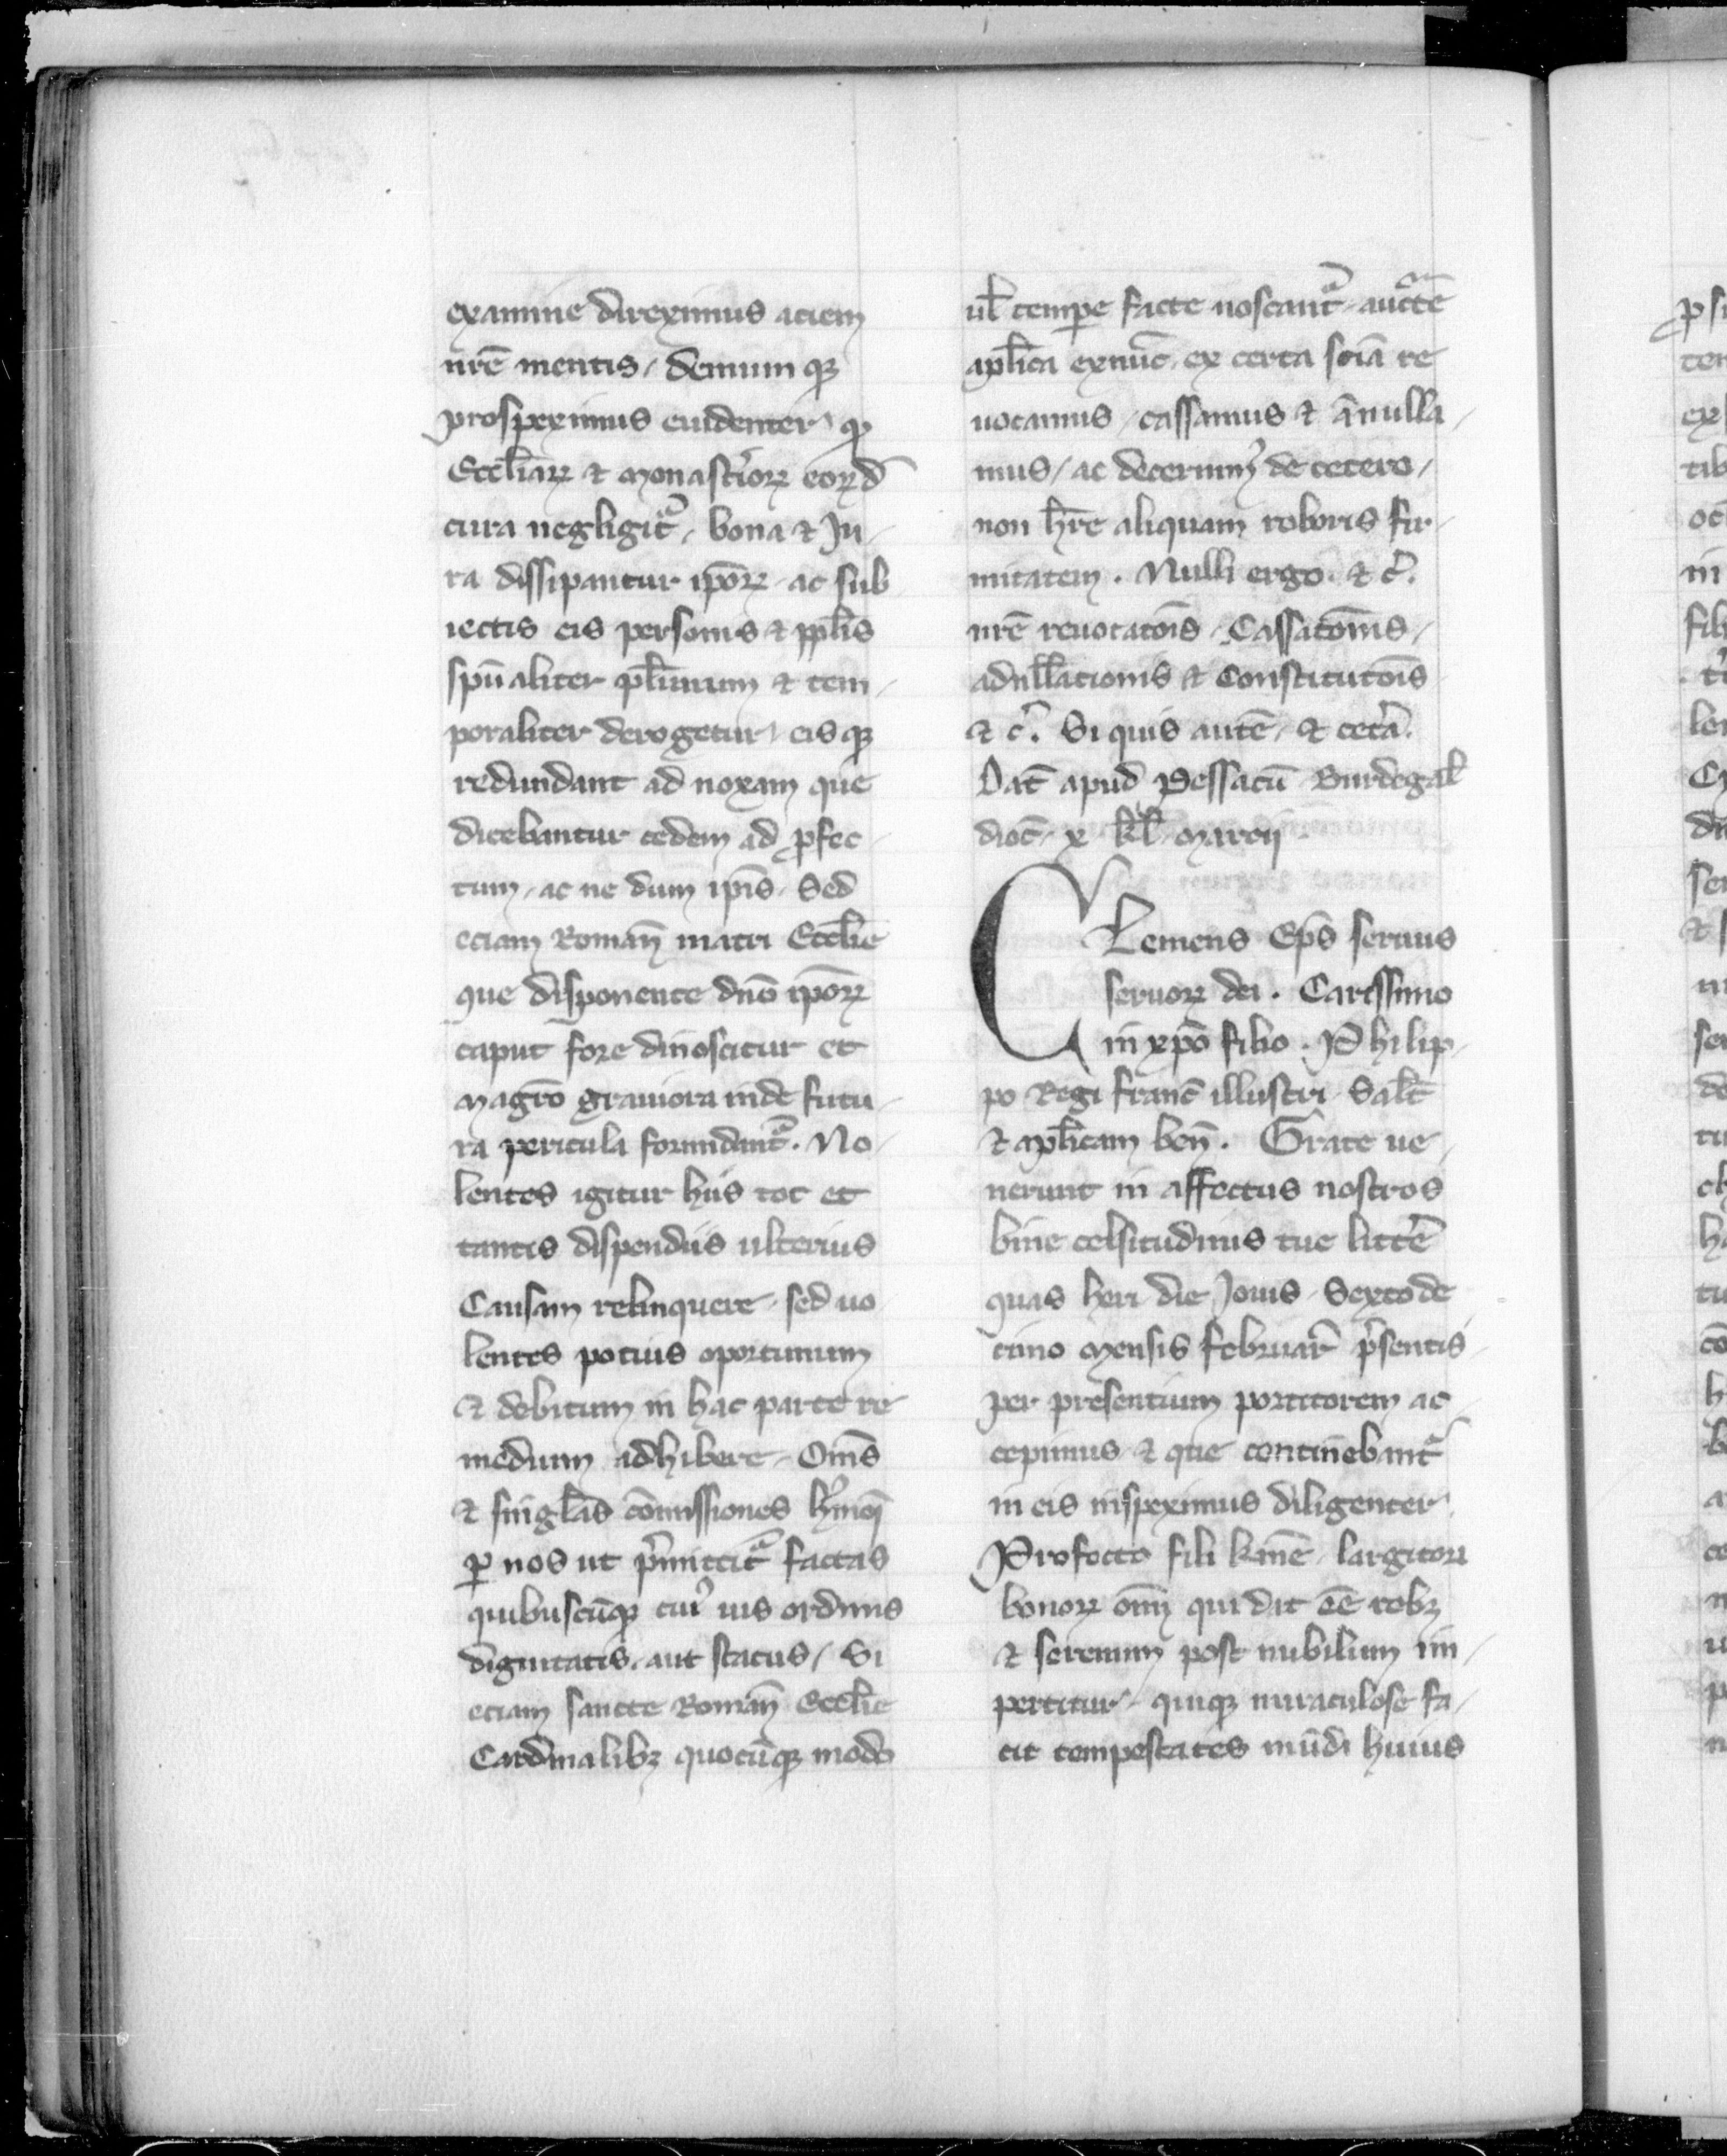 examine direximus aciem
nr̄e mentis / demum qꝫ
prospeximus euidenter / ꝙ
Eccl̄iaꝝ & monast'ioꝝ eoꝝd̄
cura negligit᷑ / bona & Ju-
ra dissipantur ip̄oꝝ ac sub
iectis eis personis & ppl̄is
sp̄ualiter pl̄imum & tem-
poraliter derogetur / eisqꝫ
redundant ad noxam que
dicebantur cedem ad ꝓfec-
tum / ac ne dum ip̄is / Sed
eciam Roman̄ matri Eccl̄ie
que disponente dn̄o ip̄oꝝ
caput fore dinoscitur et
magr̄o grauiora inde futu-
ra pericula formidant᷑. No-
lentes igitur hiis tot et
tantis dispendiis ulterius
Causam relinquere / sed uo
lentes potius oportunum
& debitum in hac parte re
medium adhibere / Om̄s
& singl̄as cōmissiones hmōi
ꝑ nos ut p̄mittit᷑ factas
quibuscūqꝫ cui' uis ordinis
dignitatis / aut status / Si
eciam sancte Roman̄ Eccl̄ie
Cardinalibꝫ quocūqꝫ modo
ul̄ tempe facte noscant᷑ / auct̄te
apl̄ica exnūc / ex certa sciā re
uocamus / cassamus & ānulla-
mus / ac decernim' de cetero /
non hr̄e aliquam roboris fir-
mitatem . Nulli ergo . & c̄.
nr̄e reuocatōis / Cassatōnis /
adnull̄ationis & Constitutōis
& c̄. Si quis autē / & cet̄a.
Dat̄ apud Pessacū Burdegal̄
dioc̄ / x kl̄ / marcij
CLemens Ep̄s seruus
seruoꝝ dei . Carissimo
in xp̄o filio . Philip-
po Regi franc̄ illustri / Salt̄
& apl̄icam ben̄. Grate ue-
nerunt in affectus nostros
bine celsitudinis tue litt̄e
quas heri die Jouis / Sextode
cimo mensis februar̄ p̄sentis
per presentium portitorem ac-
cepimus / & que continebant᷑
in eis inspeximus diligenter
Profecto fili km̄e / largitori
bonoꝝ om̄ qui dat ēē rebꝫ
& serenum post nubilum im-
pertitur / quiqꝫ miraculose fa-
cit tempestates mūdi huius